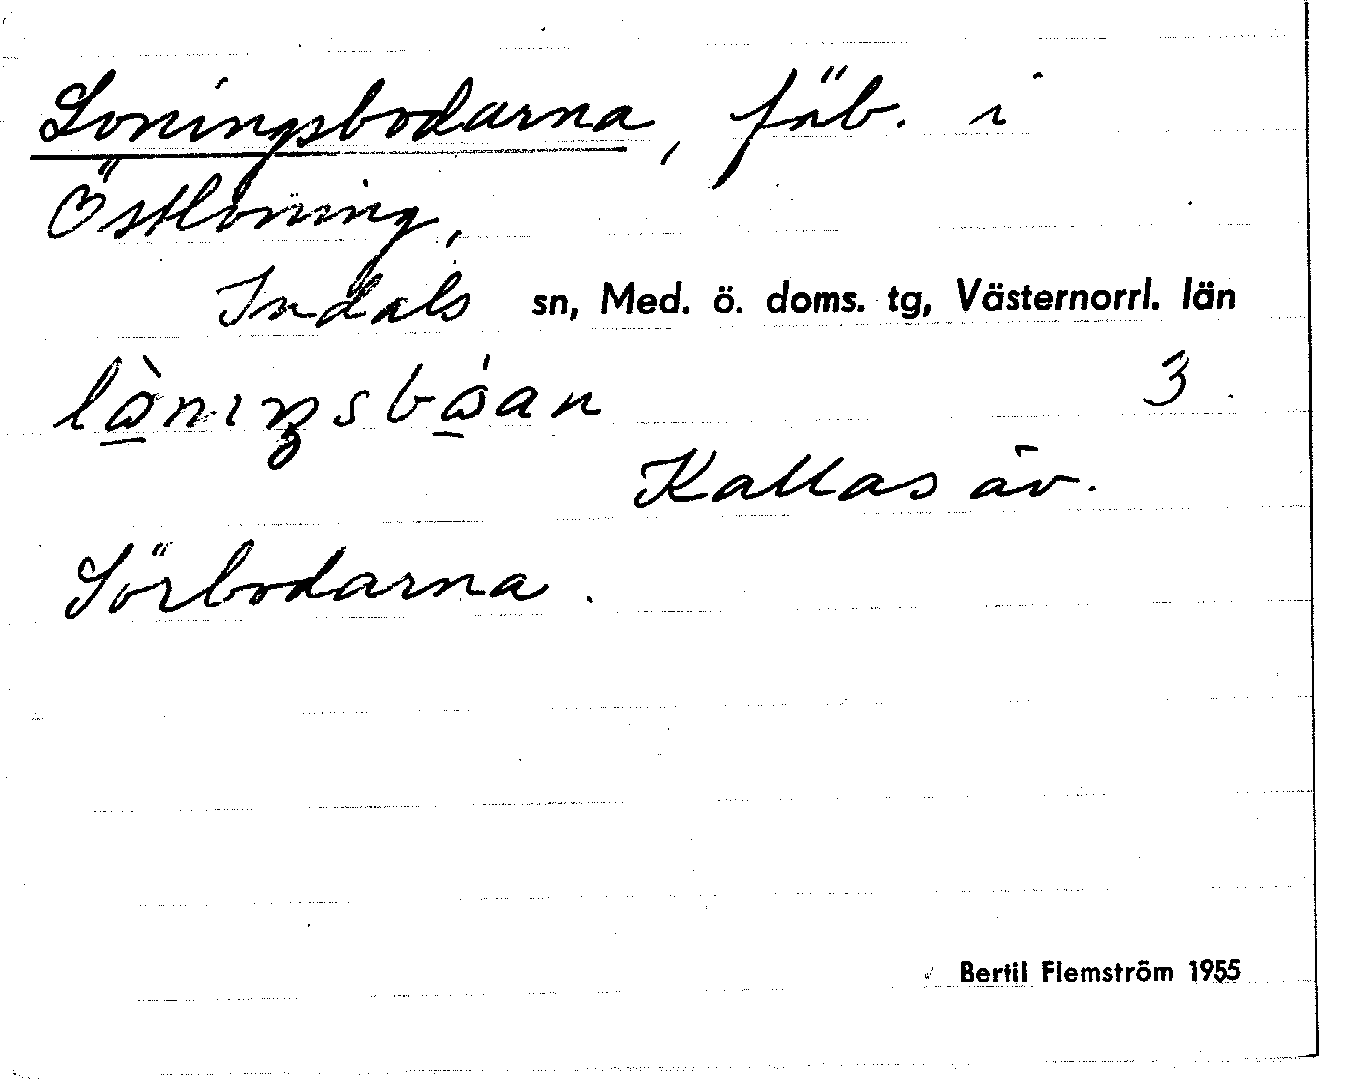 Loningsbodarna, fäb. i
Östloning,
Indals sn, Med. ö. doms. tg, Västernorrl. län
3
Kallas äv.
Sörbodarna.
Bertil Flemström 1955